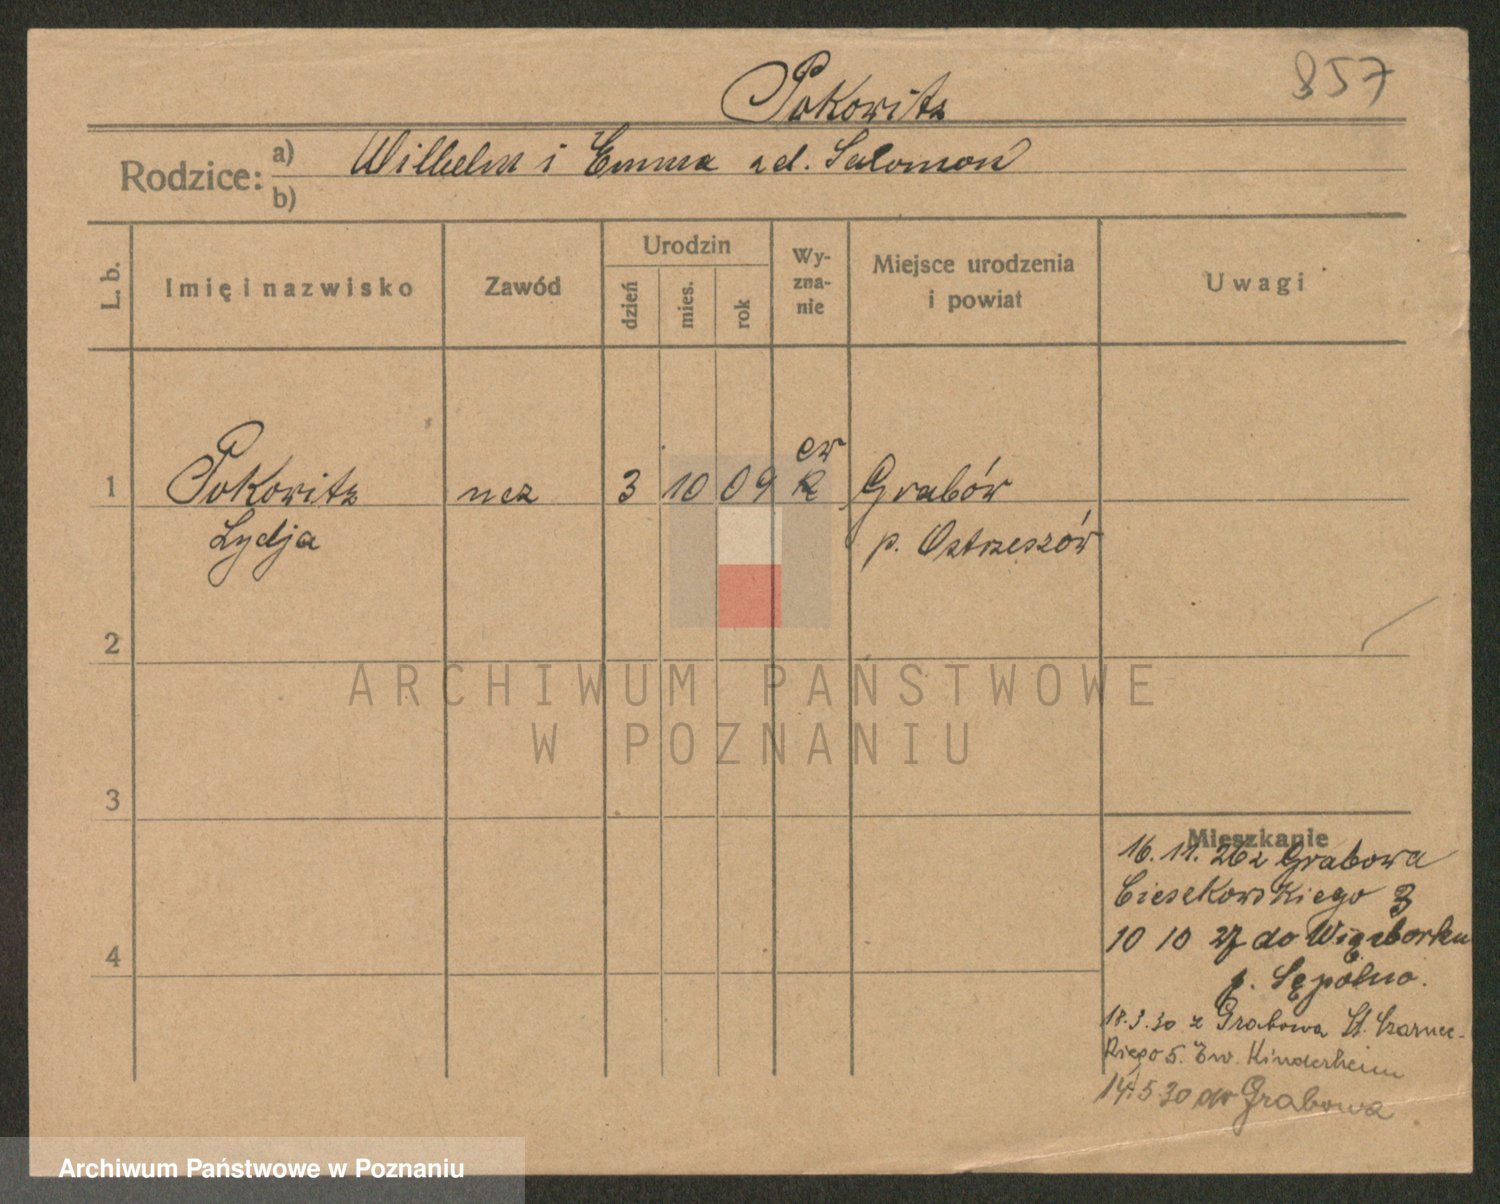 857
Pokowitz
Rodzice: a) Wilhelm i Emma zd. Salomon
b)
L. b. Imię i nazwisko Zawód Urodzin dzień mies. rok Wyzna-nie Miejsce urodzenia i powiat Uwagi
ew
1 Pokowitz nez 3 10 09 k Grabów
Lydja p. Ostrzeszów
2
ARCHIWUM PAŃSTWOWE
W POZNANIU
3
Mieszkanie
16. 11. 26 z Grabowa
Cieszkowskiego 3
4
10 10 27 do Więcborku
p. Sępólno.
18.3.30 z Grabowa St. Czarnec-
kiego 5. Ew. Kinderheim
14.5.30 do Grabowa
Archiwum Państwowe w Poznaniu